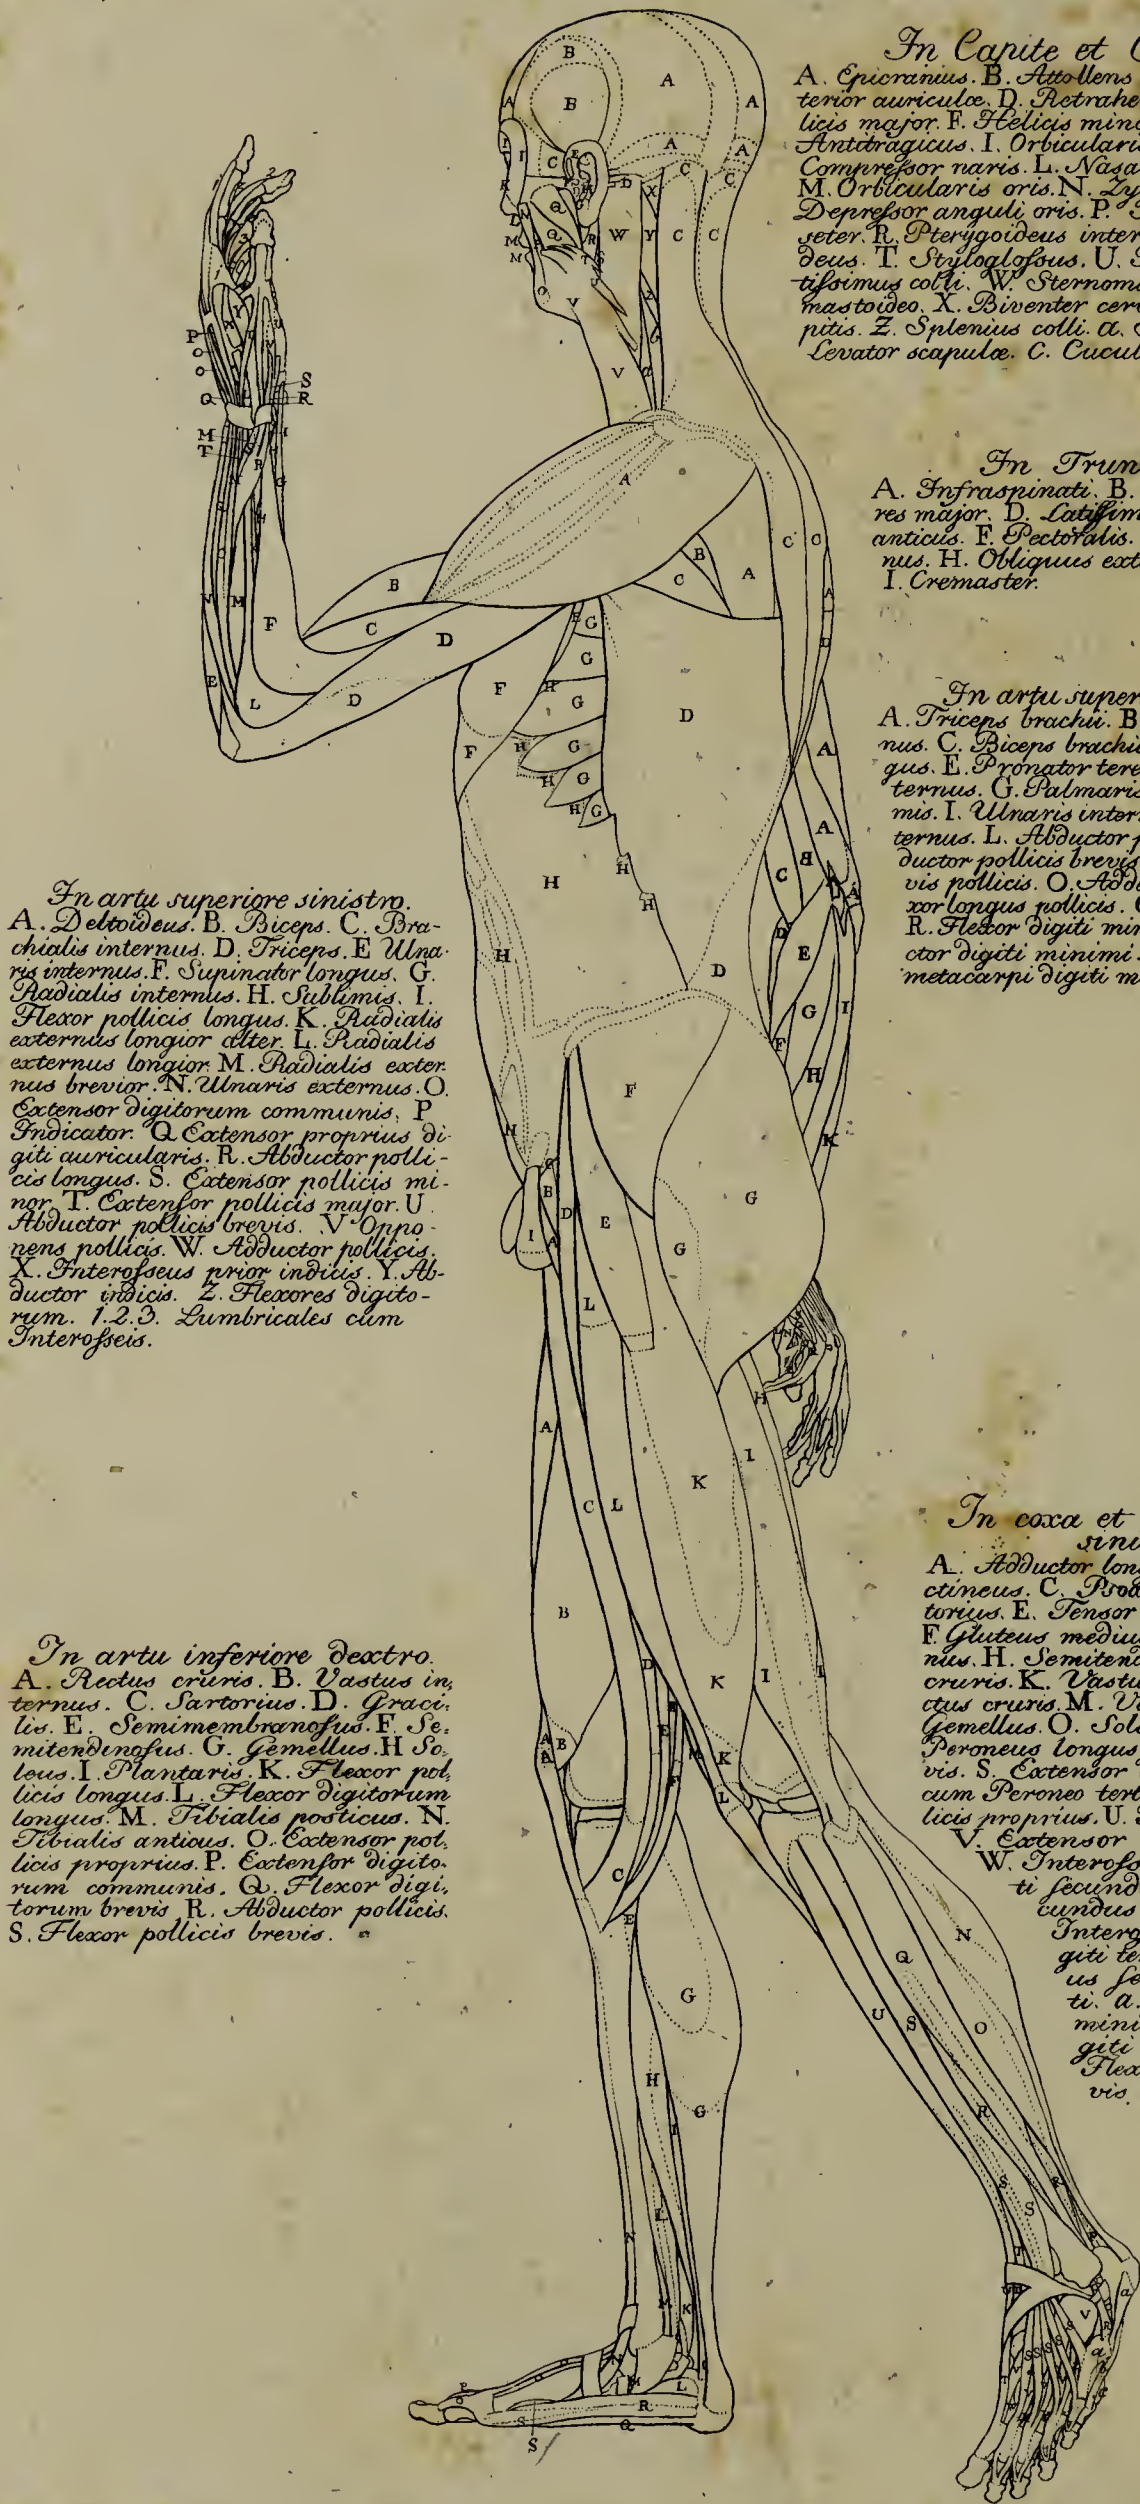 In Capite et C
A. Epicranius. B. Attollens
terior auriculæ. D. Retrahe
licis major. F. Helicis mino
Antitragicus. I. Orbicularis
Compreſsor naris. L. Nasa
M. Orbicularis oris. N. Zy
Depreſsor anguli oris. P.
seter. R. Pterygoideus inter
deus. T. Stylogloſsus. U.
tiſsimus colli. W. Sternoma
mastoideo. X. Biventer cerv
pitis. Z. Splenius colli. a.
Levator scapulæ. C. Cucul
In Trun
A. Infraspinati. B.
res major. D. Latiſsim
anticus. F. Pectoralis.
nus. H. Obliquus ext
I. Cremaster.
In artu super
A. Triceps brachii. B
nus. C. Biceps brachii
gus. E. Pronator tere
ternus. G. Palmaris
mis. I. Ulnaris intern
ternus. L. Abductor p
ductor pollicis brevis
vis pollicis. O. Addu
xor longus pollicis.
R. Flexor digiti min
ctor digiti minimi.
metacarpi digiti m
In artu superiore sinistro.
A. Deltoideus. B. Biceps. C. Bra-
chialis internus. D. Triceps. E Ulna-
ris internus. F. Supinator longus. G.
Radialis internus. H. Sublimis. I.
Flexor pollicis longus. K. Radialis
externus longior alter. L. Radialis
externus longior. M. Radialis exter-
nus brevior. N. Ulnaris externus. O.
Extensor digitorum communis. P
Indicator. Q Extensor proprius di-
giti auricularis. R. Abductor polli-
cis longus. S. Extensor pollicis mi-
nor. T. Extenſor pollicis major. U
Abductor pollicis brevis. V Oppo-
nens pollicis. W. Adductor pollicis.
X. Interoſseus prior indicis. Y. Ab-
ductor indicis. Z. Flexores digito-
rum. 1.2.3. Lumbricales cum
Interoſseis.
In coxa et
sini
A. Adductor lon
ctineus. C. Psoa
torius. E. Tensor
F. Gluteus mediu
nus. H. Semitend
cruris. K. Vastu
ctus cruris. M. V
Gemellus. O. Sole
Peroneus longus
vis. S. Extensor
cum Peroneo tert
licis proprius. U.
V. Extensor
W. Interoſs
ti ſecund
cundus
Interoſ
giti te
us ſe
ti. a.
mini
giti
Flex
vis.
In artu inferiore dextro.
A. Rectus cruris. B. Vastus in-
ternus. C. Sartorius. D. Graci-
lis. E. Semimembranoſus. F. Se-
mitendinoſus. G. Gemellus. H So-
leus. I. Plantaris. K. Flexor pol-
licis longus. L. Flexor digitorum
longus. M. Tibialis posticus. N.
Tibialis anticus. O. Extensor pol-
licis proprius. P. Extenſor digito-
rum communis. Q. Flexor digi-
torum brevis R. Abductor pollicis.
S. Flexor pollicis brevis.